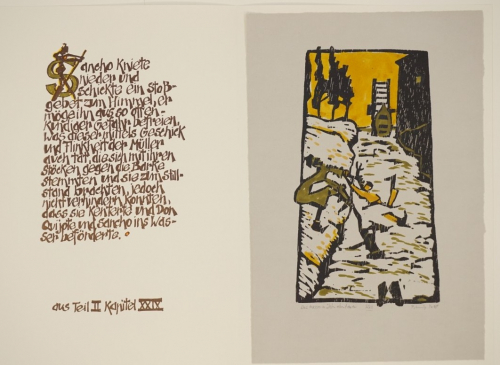 Sancho kniete
nieder und
schickte ein Stoß-
gebet zum Himmel, er
möge ihn aus so offen-
kundiger Gefahr befreien,
was dieser mittels Geschick
und Flinkheit der Müller
auch tat, die sich mit ihren
Stöcken gegen die Barke
stemmten und sie zum Still-
stand brachten, jedoch
nicht verhindern konnten,
dass sie kenterte und Don
Quijote und Sancho ins Was-
ser beförderte.
aus Teil II Kapitel XXIX